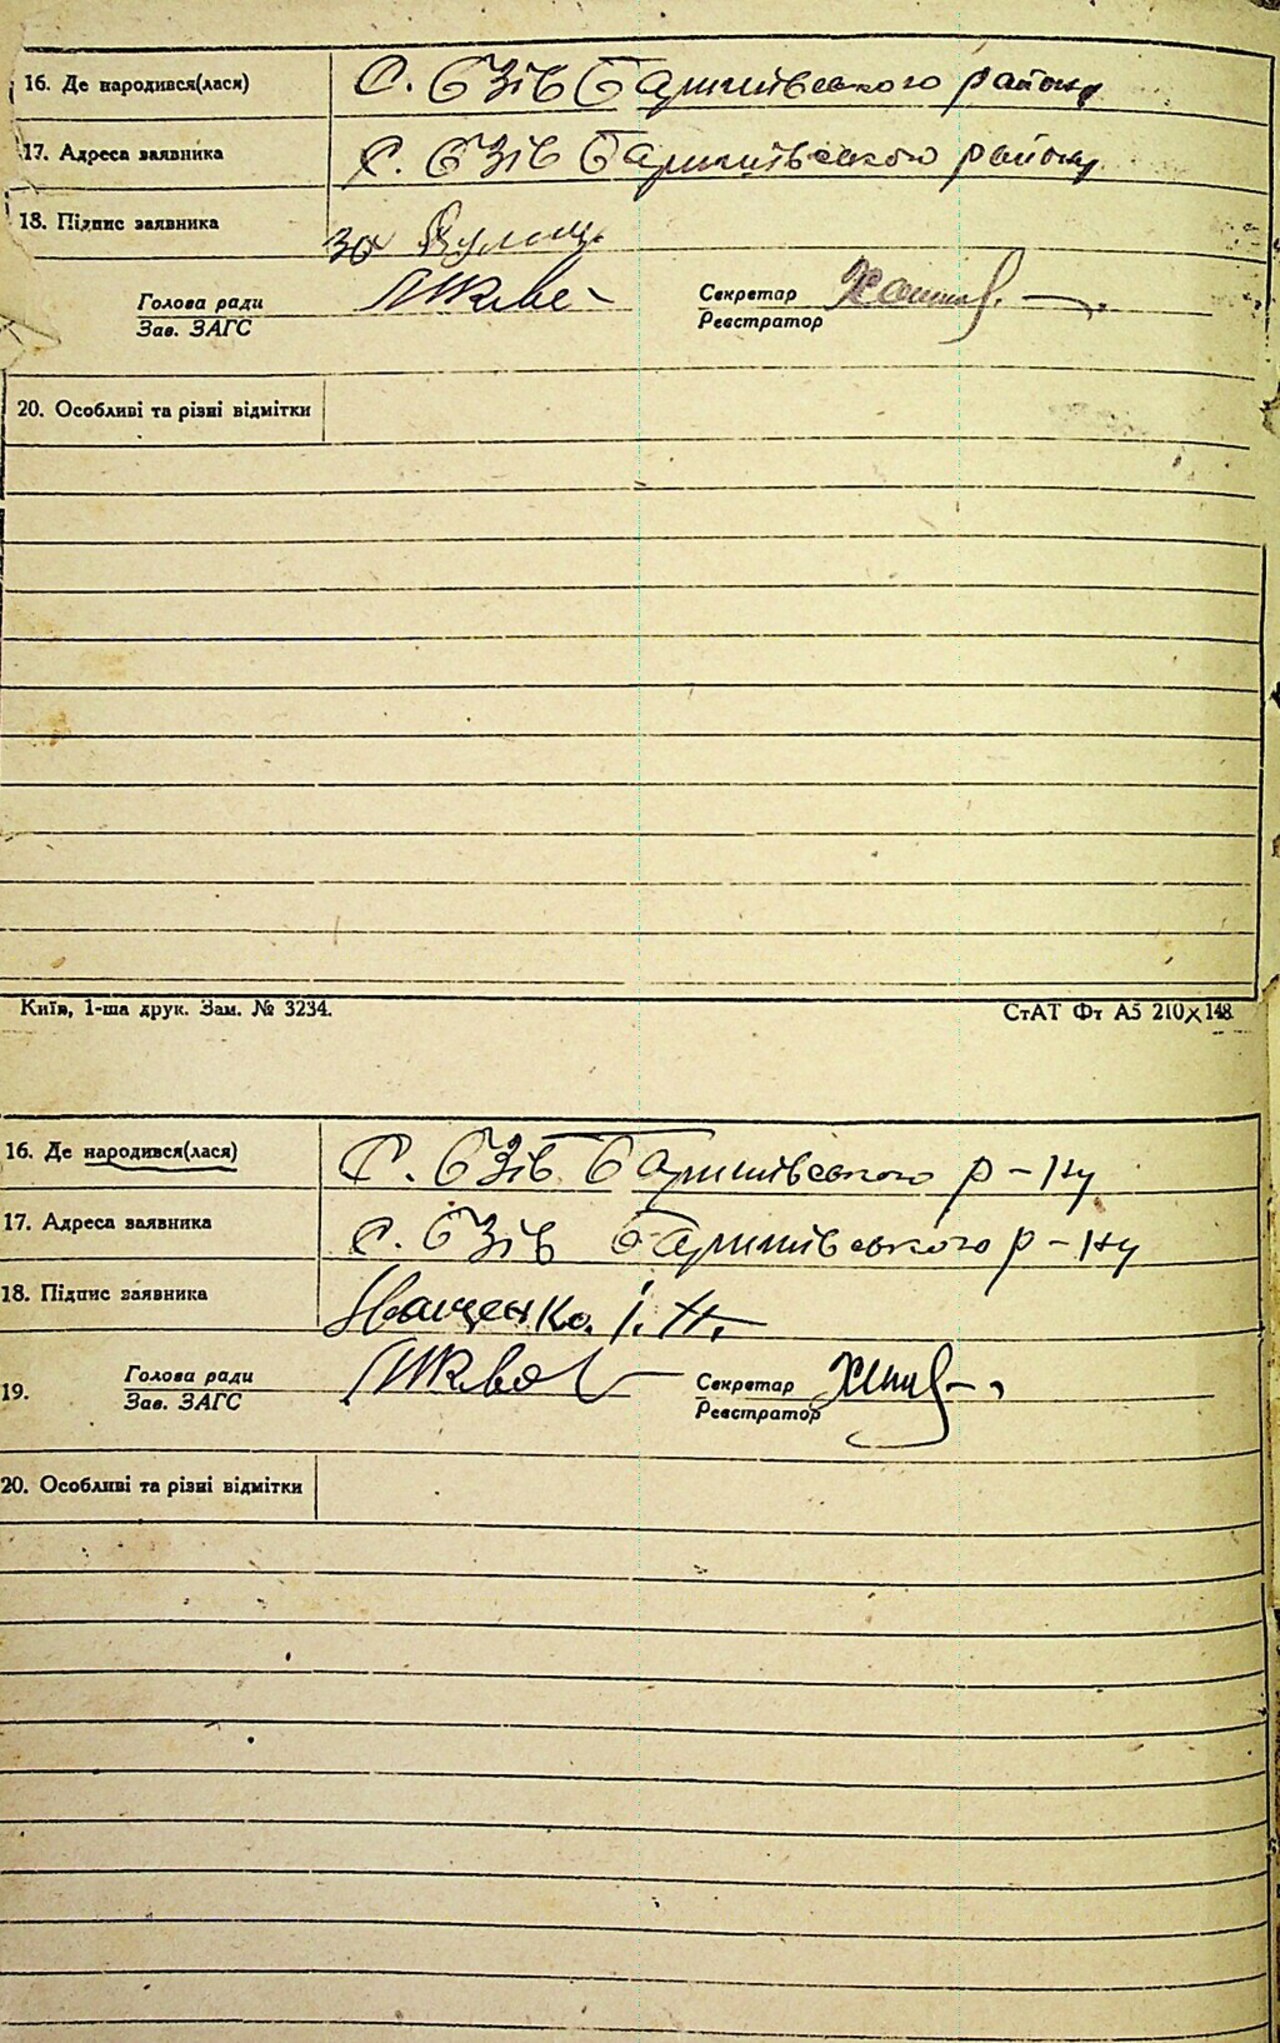 16. Де народився(лася) С. Бзів Баришівського району
17. Адреса заявника С. Бзів Баришівського району
18. Підпис заявника за
Голова ради Секретар
Зав. ЗАГС Реєстратор
20. Особливі та різні відмітки
Київ, 1-ша друк. Зам. № 3234. СтАТ Фт А5 210х148
16. Де народився(лася) С. Бзів Баришівського р-ну
17. Адреса заявника С. Бзів Баришівського р-ну
18. Підпис заявника Іващенко. І. Н.
19. Голова ради Секретар
Зав. ЗАГС Реєстратор
20. Особливі та різні відмітки